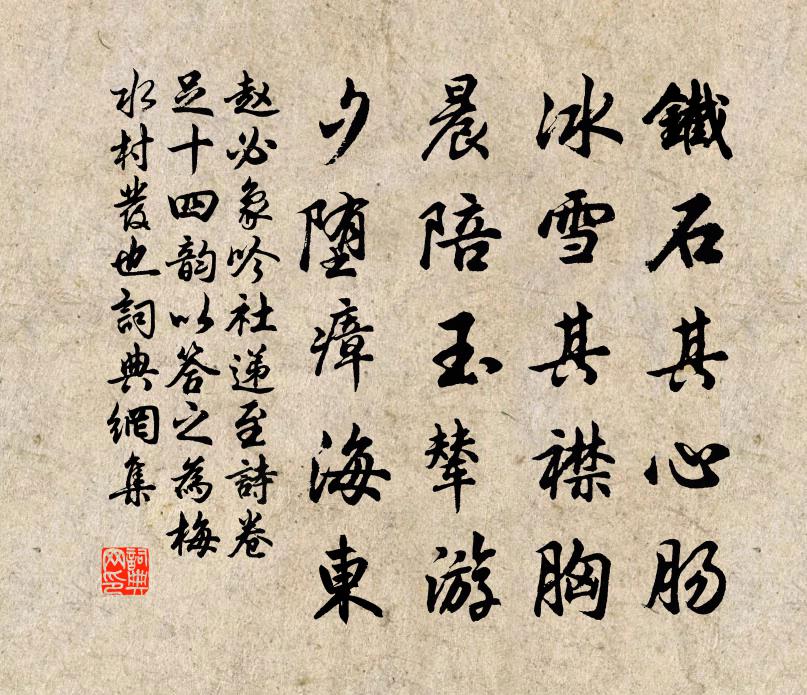 鐵石其心肠
冰雪其襟胸
晨陪玉辇游
夕堕瘴海東
赵必象吟社递至詩卷
足十四韵以答之為梅
水村發也詞典網集
詞典网印